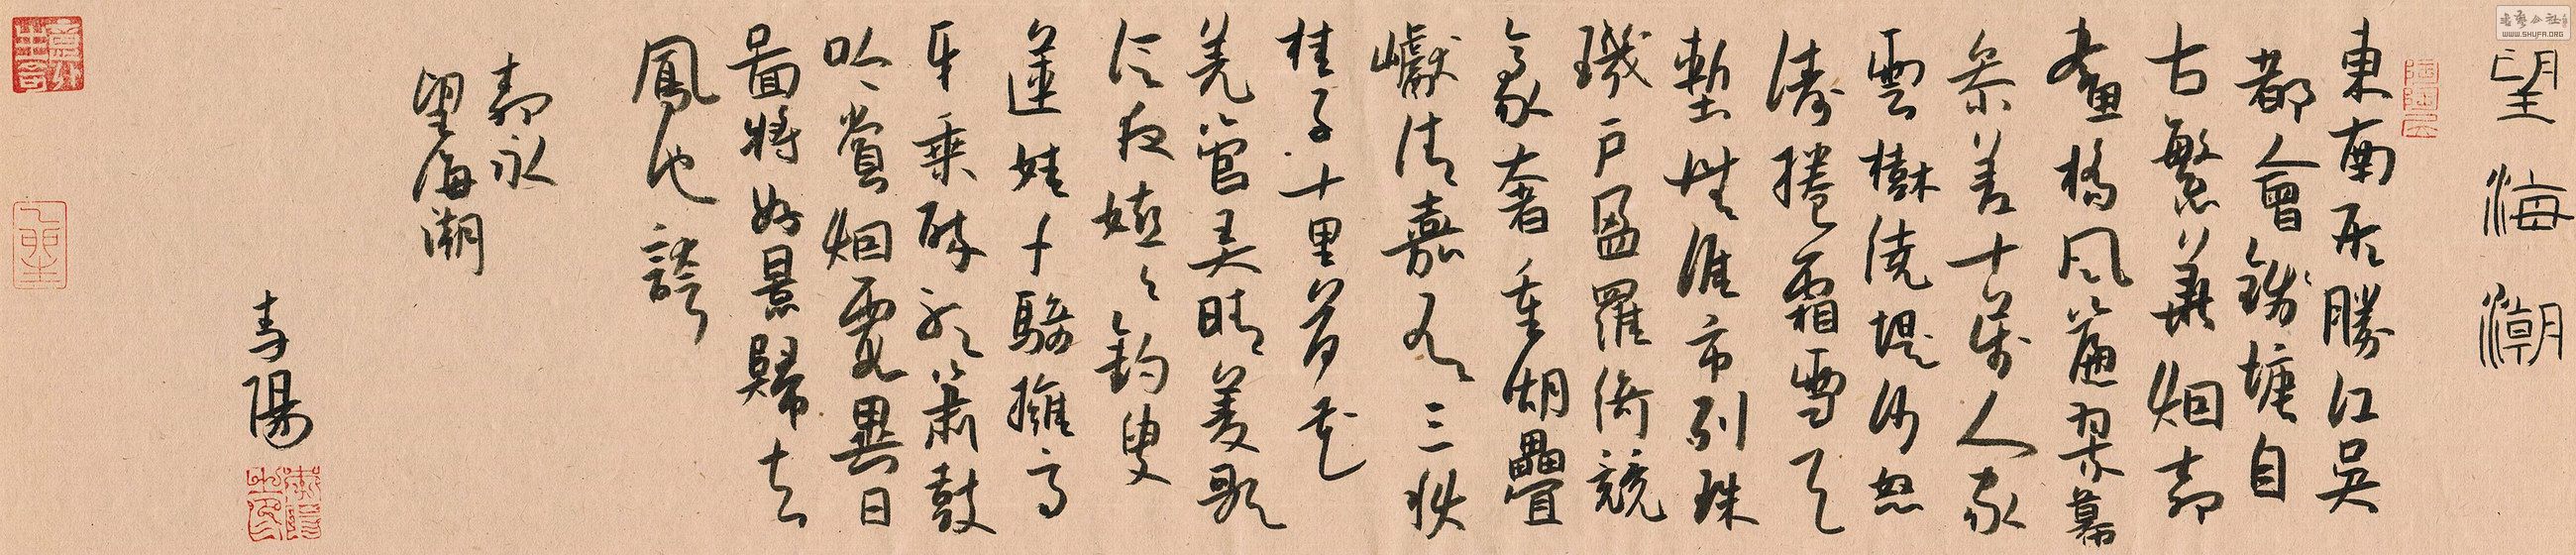 望海潮
東南形勝江吳
都會錢塘自
古繁華烟柳
畫橋風簾翠幕
參差十萬人家
雲樹繞堤沙怒
濤捲霜雪天
塹無涯市列珠
璣戶盈羅綺競
豪奢重湖疊
巘清嘉有三秋
桂子十里荷花
羌管弄晴菱歌
泛夜嬉々釣叟
蓮娃千騎擁高
牙乘醉聽簫鼓
吟賞烟霞異日
圖將好景歸去
鳳池誇
柳永
望海潮
青陽
書艺公社
WWW.SHUFA.ORG